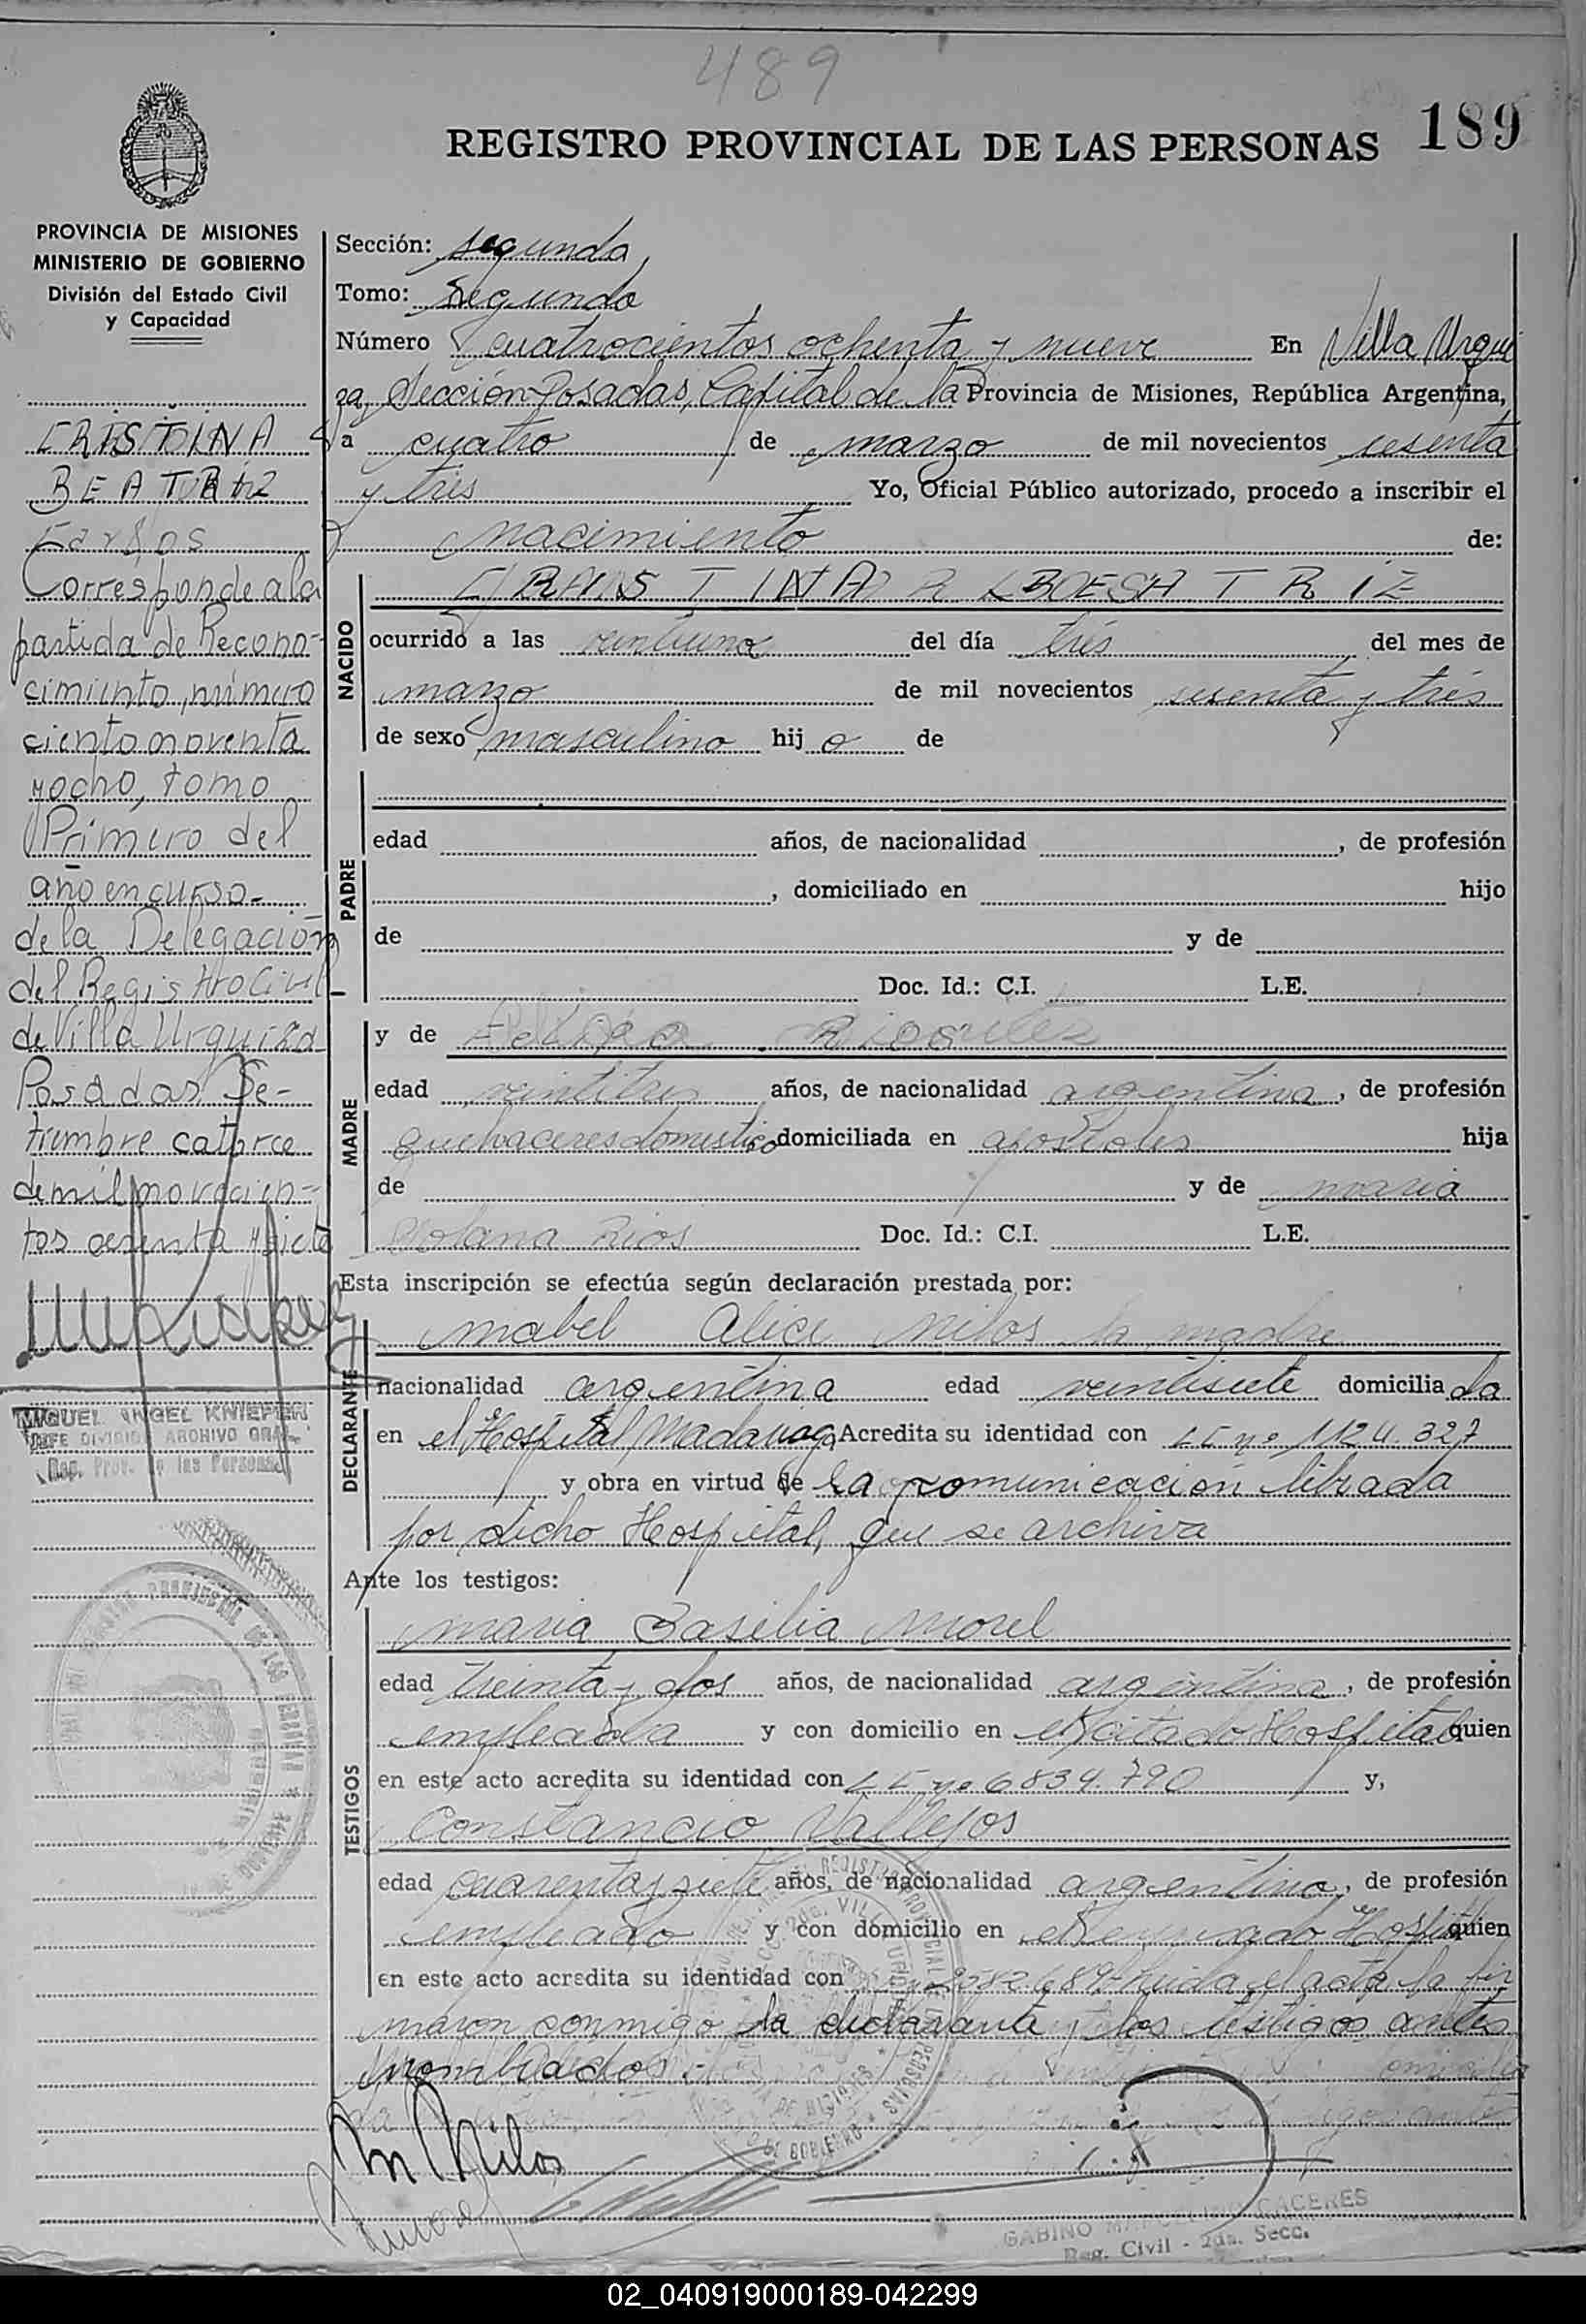 489
REGISTRO PROVINCIAL DE LAS PERSONAS 189
PROVINCIA DE MISIONES
MINISTERIO DE GOBIERNO
División del Estado Civil
y Capacidad
CRISTINA
BEATRIZ
Corresponde a la
partida de Recono-
cimiento, número
ciento noventa
y ocho, tomo
Primero del
año en curso.-
de la Delegación
del Registro Civil
de Villa Urquiza
Posadas Se-
tiembre catorce
de mil novecien-
tos sesenta y siete
MIGUEL ANGEL KNIEPER
JEFE DIVISION ARCHIVO GRAL.
Reg. Prov. de las Personas
Sección: segunda
Tomo: Segundo
Número cuatrocientos ochenta y nueve En Villa Urqui
za, Sección Posadas, Capital de la Provincia de Misiones, República Argentina,
a cuatro de marzo de mil novecientos sesenta
y tres Yo, Oficial Público autorizado, procedo a inscribir el
nacimiento de:
NACIDO
ocurrido a las veintiuna del día trés del mes de
marzo de mil novecientos sesenta y trés
de sexo masculino hij o de
PADRE
edad años, de nacionalidad , de profesión
, domiciliado en hijo
de y de
Doc. Id.: C.I. L.E.
MADRE
y de
edad veintitres años, de nacionalidad argentina, de profesión
quehaceres domestico domiciliada en apostoles hija
de y de maria
Rios Doc. Id.: C.I. L.E.
Esta inscripción se efectúa según declaración prestada por:
DECLARANTE
Mabel Alice Milos
nacionalidad argentina edad veintisiete domicilia da
en el Hospital Madariaga Acredita su identidad con nº 1124.327
y obra en virtud de la comunicación librada
por dicho Hospital, que se archiva
Ante los testigos:
TESTIGOS
Maria Basilia Morel
edad treinta y dos años, de nacionalidad argentina, de profesión
empleada y con domicilio en el citado Hospital quien
en este acto acredita su identidad con nº 6834.790 y,
Constancio Vallejos
edad cuarenta y siete años, de nacionalidad argentino, de profesión
empleado y con domicilio en Hospital quien
en este acto acredita su identidad con leida el acta la fir
maron conmigo la declarante y los testigos antes
nombrados.-
M Milos
GABINO MARCELINO CACERES
Reg. Civil - 2da. Secc.
02_040919000189-042299